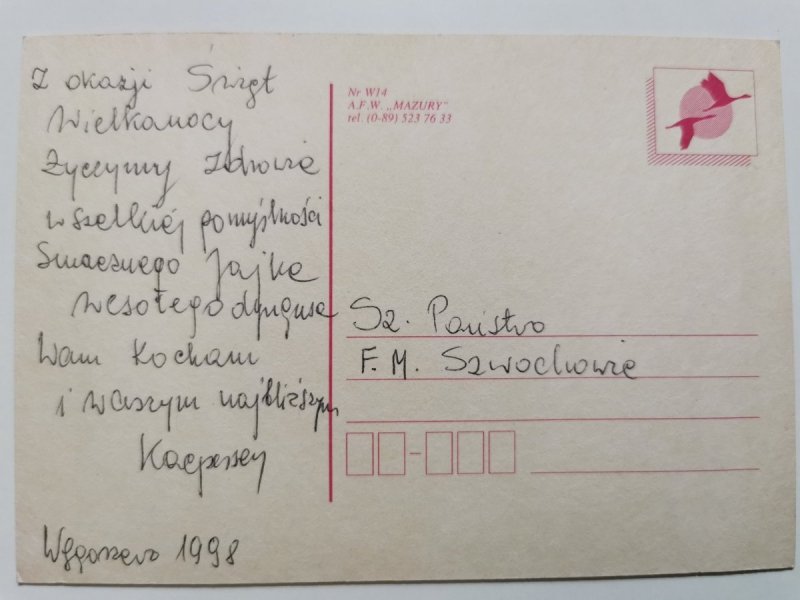 Z okazji Świąt
Wielkanocy
życzymy zdrowia
wszelkiej pomyślności
Smacznego Jajka
Wesołego dyngusa
Wam Kochani
i waszym najbliższym
Kacprzey
1998
Nr W14
A.F.W. „MAZURY"
tel. (0-89) 523 76 33
Sz. Państwo
F. M. Szwochowie